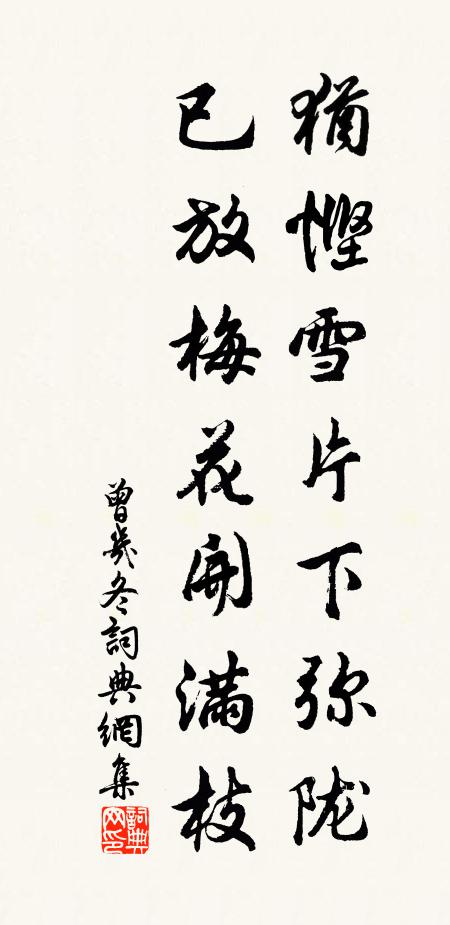 猶慳雪片下弥陇
已放梅花開满枝
曾幾冬詞典網集
詞典網印